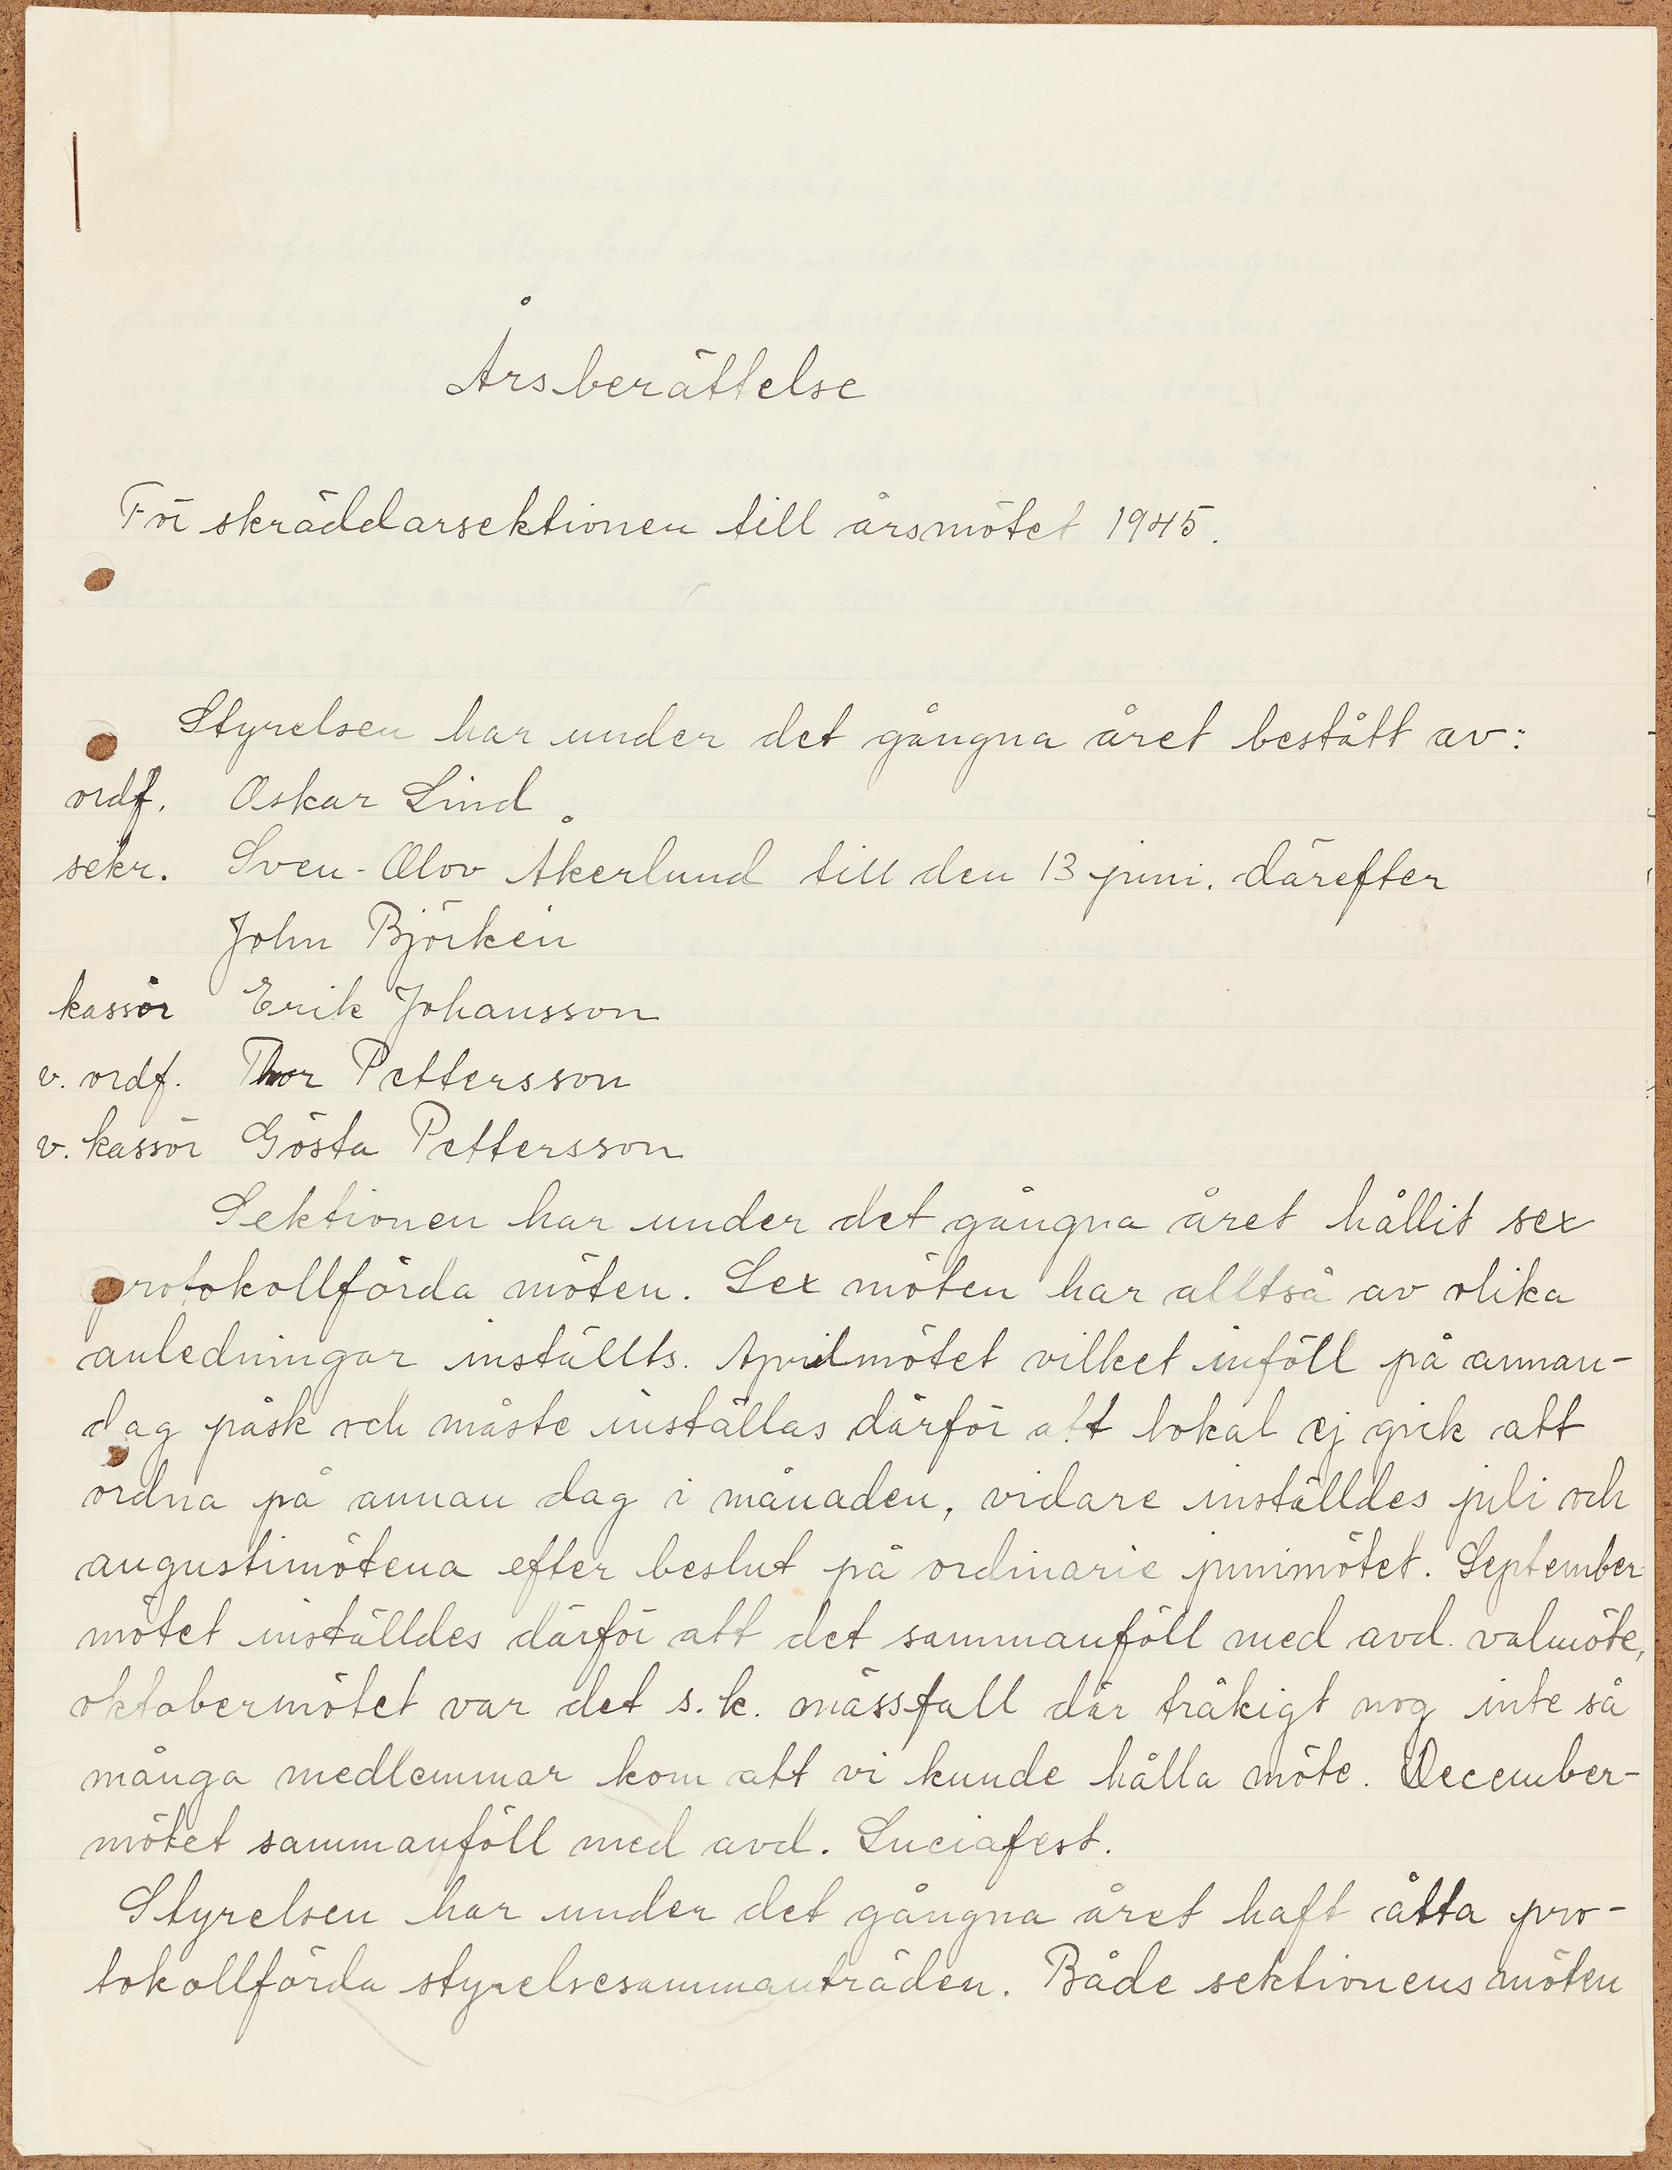 Årsberättelse
För skräddarsektionen till årsmötet 1945.
Styrelsen har under det gångna året bestått av:
ordf. Oskar Lind
sekr. Sven-Olov Åkerlund till den 13 juni. därefter
John Björkén
kassör Erik Johansson
v. ordf. Thor Pettersson
v. kassör Gösta Pettersson
Sektionen har under det gångna året hållit sex
protokollförda möten. Sex möten har alltså av olika
anledningar inställts. Aprilmötet vilket inföll på annan-
dag påsk och måste inställas därför att lokal ej gick att
ordna på annan dag i månaden, vidare inställdes juli och
augustimötena efter beslut på ordinarie junimötet. September
mötet inställdes därför att det sammanföll med avd. valmöte,
oktobermötet var det s.k. mässfall där tråkigt nog inte så
många medlemmar kom att vi kunde hålla möte. December-
mötet sammanföll med avd. Luciafest.
Styrelsen har under det gångna året haft åtta pro-
tokollförda styrelsesammanträden. Både sektionens möten